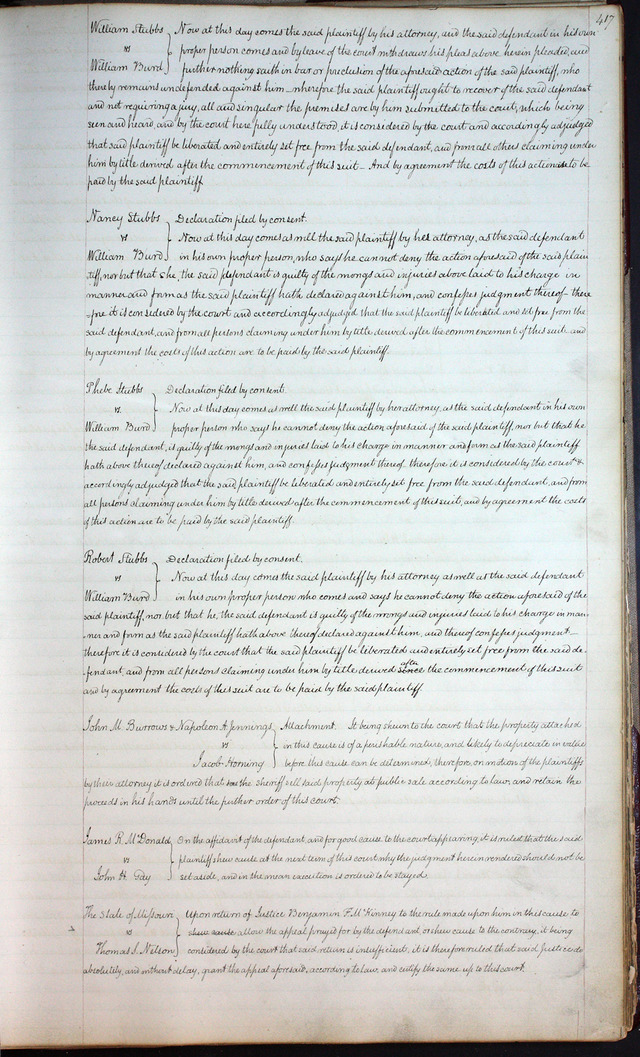 417
William Stubbs } Now at this day comes the said plaintiff by his attorney, and the said defendant in his own
vs proper person comes and by leave of the court withdraws his pleas above herein pleaded, and
William Burd further nothing saith in bar or preclusion of the aforesaid action of the said plaintiff, who
thereby remains undefended against him – wherefore the said plaintiff ought to recover of the said defendant
and not requiring a jury, all and singular the premises are by him submitted to the court, which being
seen and heard, and by the court here fully understood, it is considered by the court and accordingly adjudged
that said plaintiff be liberated and entirely set free from the said defendant, and from all others claiming under
him by title derived after the commencement of this suit – And by agreement the costs of this action are to be
paid by the said plaintiff.
Nancy Stubbs } Declaration filed by consent.
vs Now at this day comes as well the said plaintiff by her attorney, as the said defendant
William Burd in his own proper person, who says he cannot deny the action aforesaid of the said plain
tiff, nor but that she, the said defendant is guilty of the wrongs and injuries above laid to his charge in
manner and form as the said plaintiff hath declared against him, and confesses judgment thereof – there
=fore it is considered by the court and accordingly adjudged that the said plaintiff be liberated and set free from the
said defendant, and from all persons claiming under him by title derived after the commencement of this suit and
by agreement the costs of this action are to be paid by the said plaintiff.
Phebe Stubbs } Declaration filed by consent.
vs. Now at this day comes as well the said plaintiff by her attorney, as the said defendant in his own
William Burd proper person who says he cannot deny the action aforesaid of the said plaintiff, nor but that he
the said defendant, is guilty of the wrongs and injuries laid to his charge in manner and form as the said plaintiff
hath above thereof declared against him, and confesses judgment thereof. therefore it is considered by the court &
accordingly adjudged that the said plaintiff be liberated and entirely set free from the said defendant, and from
all persons claiming under him by title derived after the commencement of this suit, and by agreement the costs
of this action are to be paid by the said plaintiff.
Robert Stubbs } Declaration filed by consent.
vs Now at this day comes the said plaintiff by his attorney as well as the said defendant
William Burd in his own proper person who comes and says he cannot deny the action aforesaid of the
said plaintiff, nor but that he, the said defendant is guilty of the wrongs and injuries laid to his charge in man-
ner and form as the said plaintiff hath above thereof declared against him, and thereof confesses judgment –
therefore it is considered by the court that the said plaintiff be liberated and entirely set free from the said de-
fendant, and from all persons claiming under him by title derived since after the commencement of this suit
and by agreement the costs of this suit are to be paid by the said plaintiff.
John M. Burrows & Napoleon A. Jennings } Attachment. It being shewn to the court that the property attached
vs in this cause is of a perishable nature, and likely to depreciate in value
Jacob Horning before this cause can be determined, therefore, on motion of the plaintiffs
by their attorney it is ordered that the sheriff sell said property at public sale according to law, and retain the
proceeds in his hands until the further order of this court.
James R. McDonald } On the affidavit of the defendant, and for good cause to the court appearing, it is ruled that the said
vs plaintiff shew cause at the next term of this court why the judgment herein rendered should not be
John H. Gay set aside, and in the mean execution is ordered to be stayed.
The State of Missouri } Upon return of Justice Benjamin F. McKinney to the rule made upon him in this cause to
vs shew cause allow the appeal prayed for by the defendant or shew cause to the contrary, it being
Thomas S. Nelson considered by the court that said return is insufficient, it is therefore ruled that said Justice do
absolutely, and without delay, grant the appeal aforesaid, according to law, and certify the same up to this court.